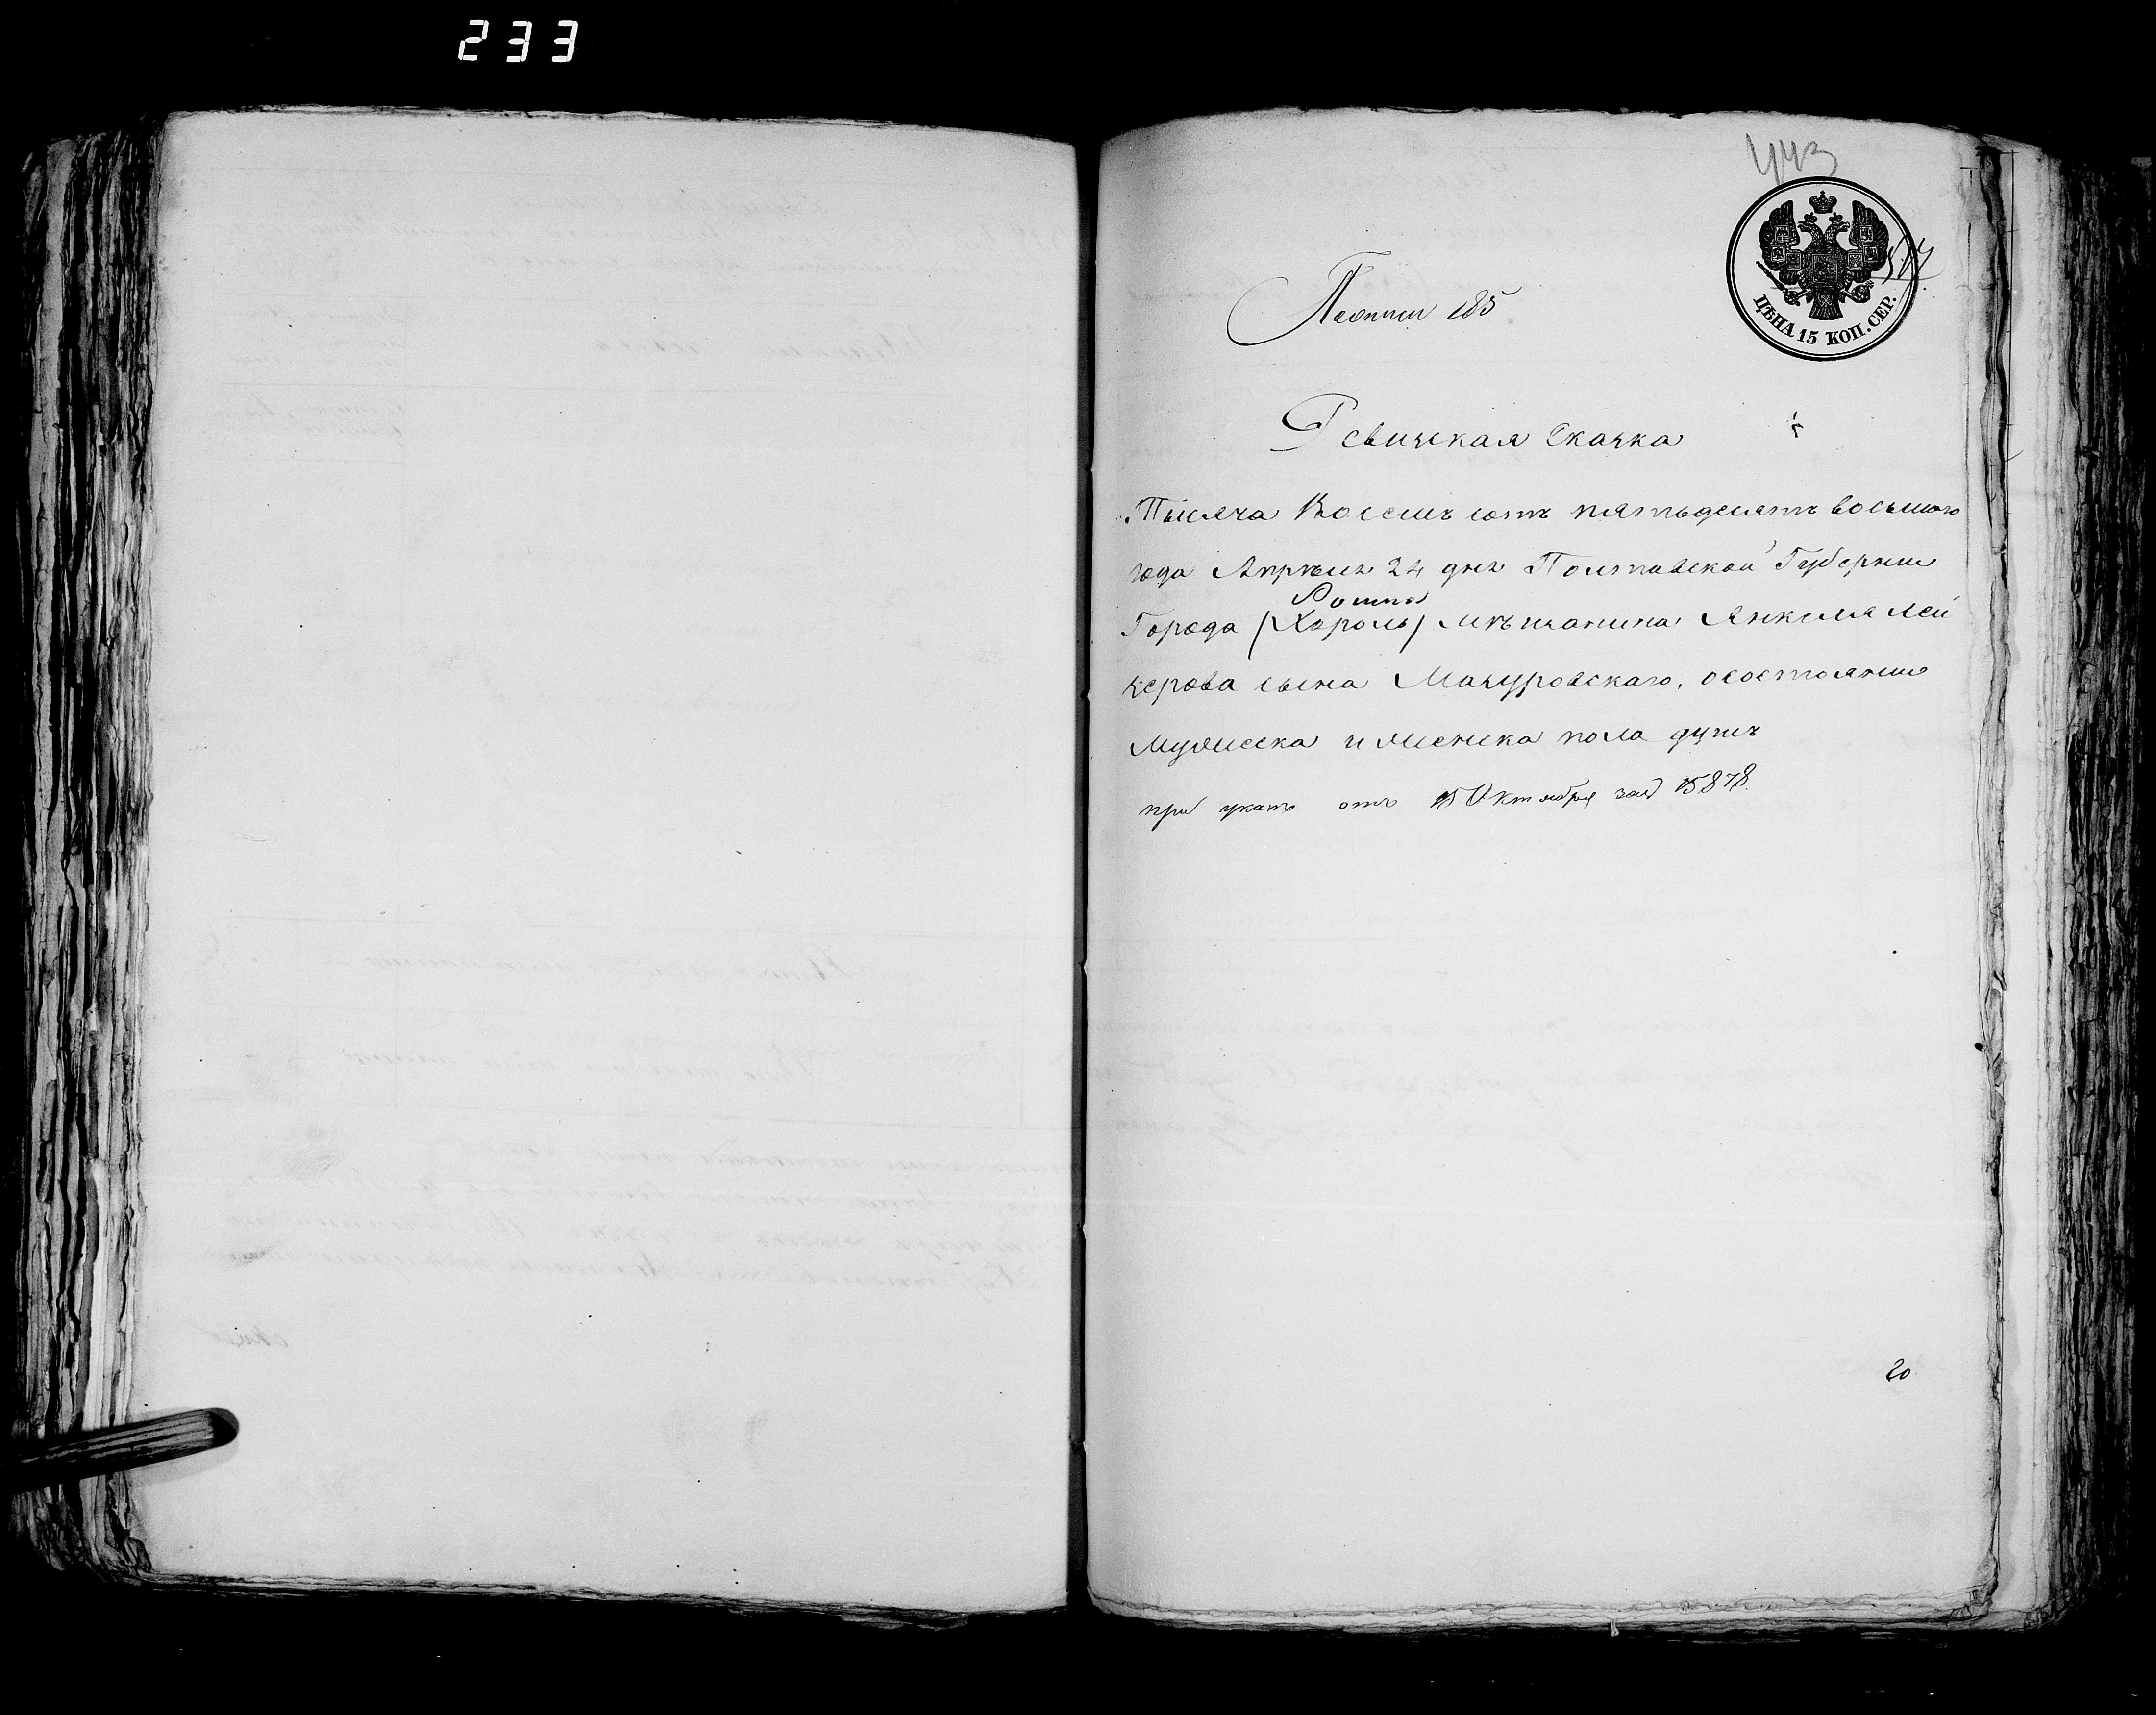 233
443
517
ЦѢНА 15 КОП. СЕР.
По описи 185
Ревижская Скачка
Тысяча Восемъ сотъ пятьдесятъ восьмого
года Апрѣля 24 дня Полтавской Губерніи
Ромна
Города (Хороль) мѣщанина Янкеля Лей
зерова сына Мачуровскаго, осостояніи
Мужеска и женска пола душъ
при указѣ отъ 15 Октября за № 15878.
20